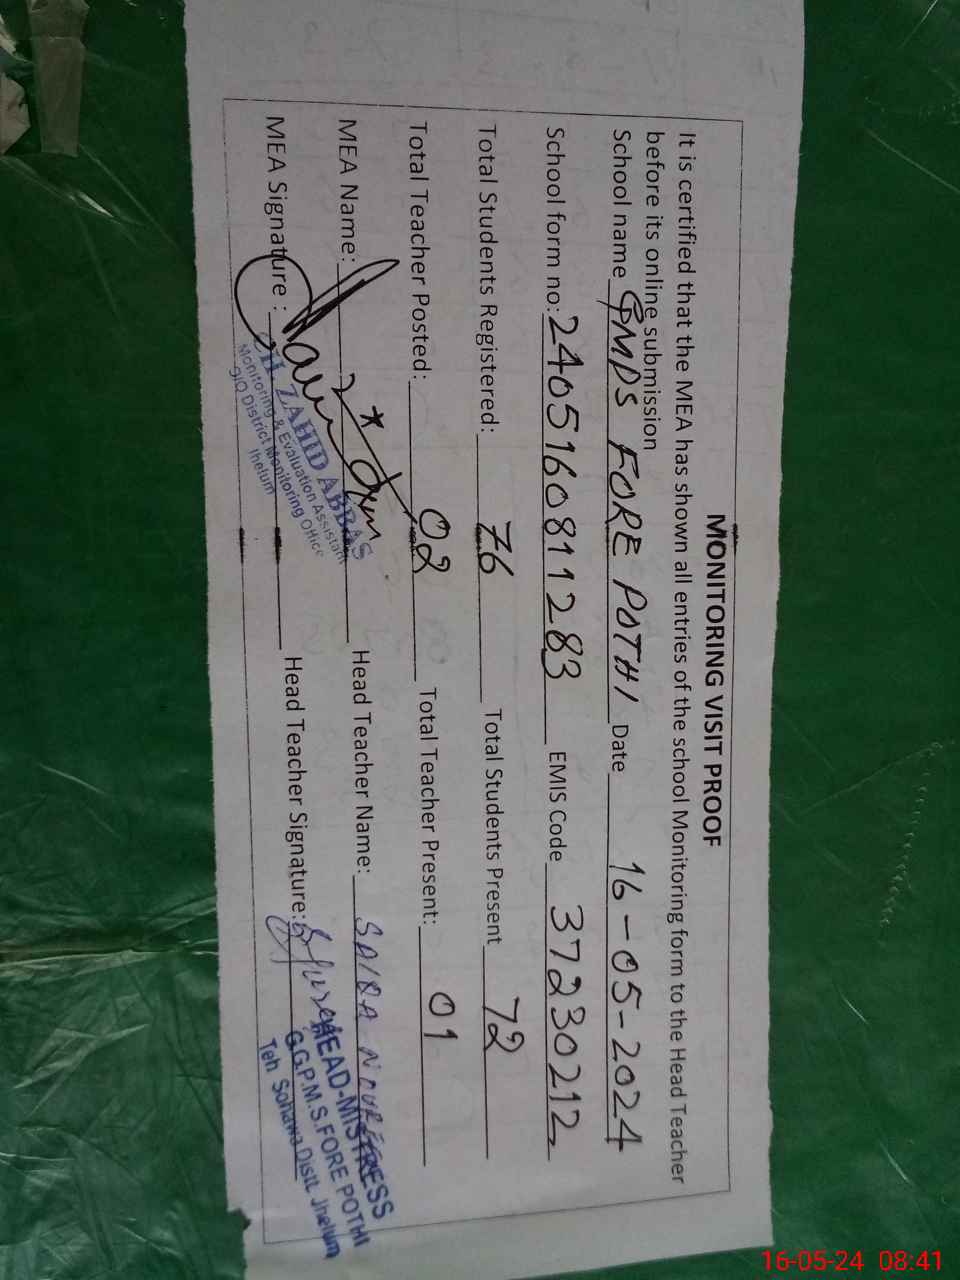 MONITORING VISIT PROOF
It is certified that the MEA has shown all entries of the school Monitoring form to the Head Teacher
before its online submission
School name GMPS FORE POTHI Date 16-05-2024
School form no: 2405160811283 EMIS Code 37230212
Total Students Registered: 76 Total Students Present 72
Total Teacher Posted: 02 Total Teacher Present: 01
MEA Name: Head Teacher Name: SAIRA
MEA Signature : Head Teacher Signature:
CH ZAHID ABBAS
Monitoring & Evaluation Assistant
O/O District Monitoring Office
Jhelum
HEAD-MISTRESS
G.G.P.M.S.FORE POTHI
Teh Sohawa Distt. Jhelum
16-05-24 08:41